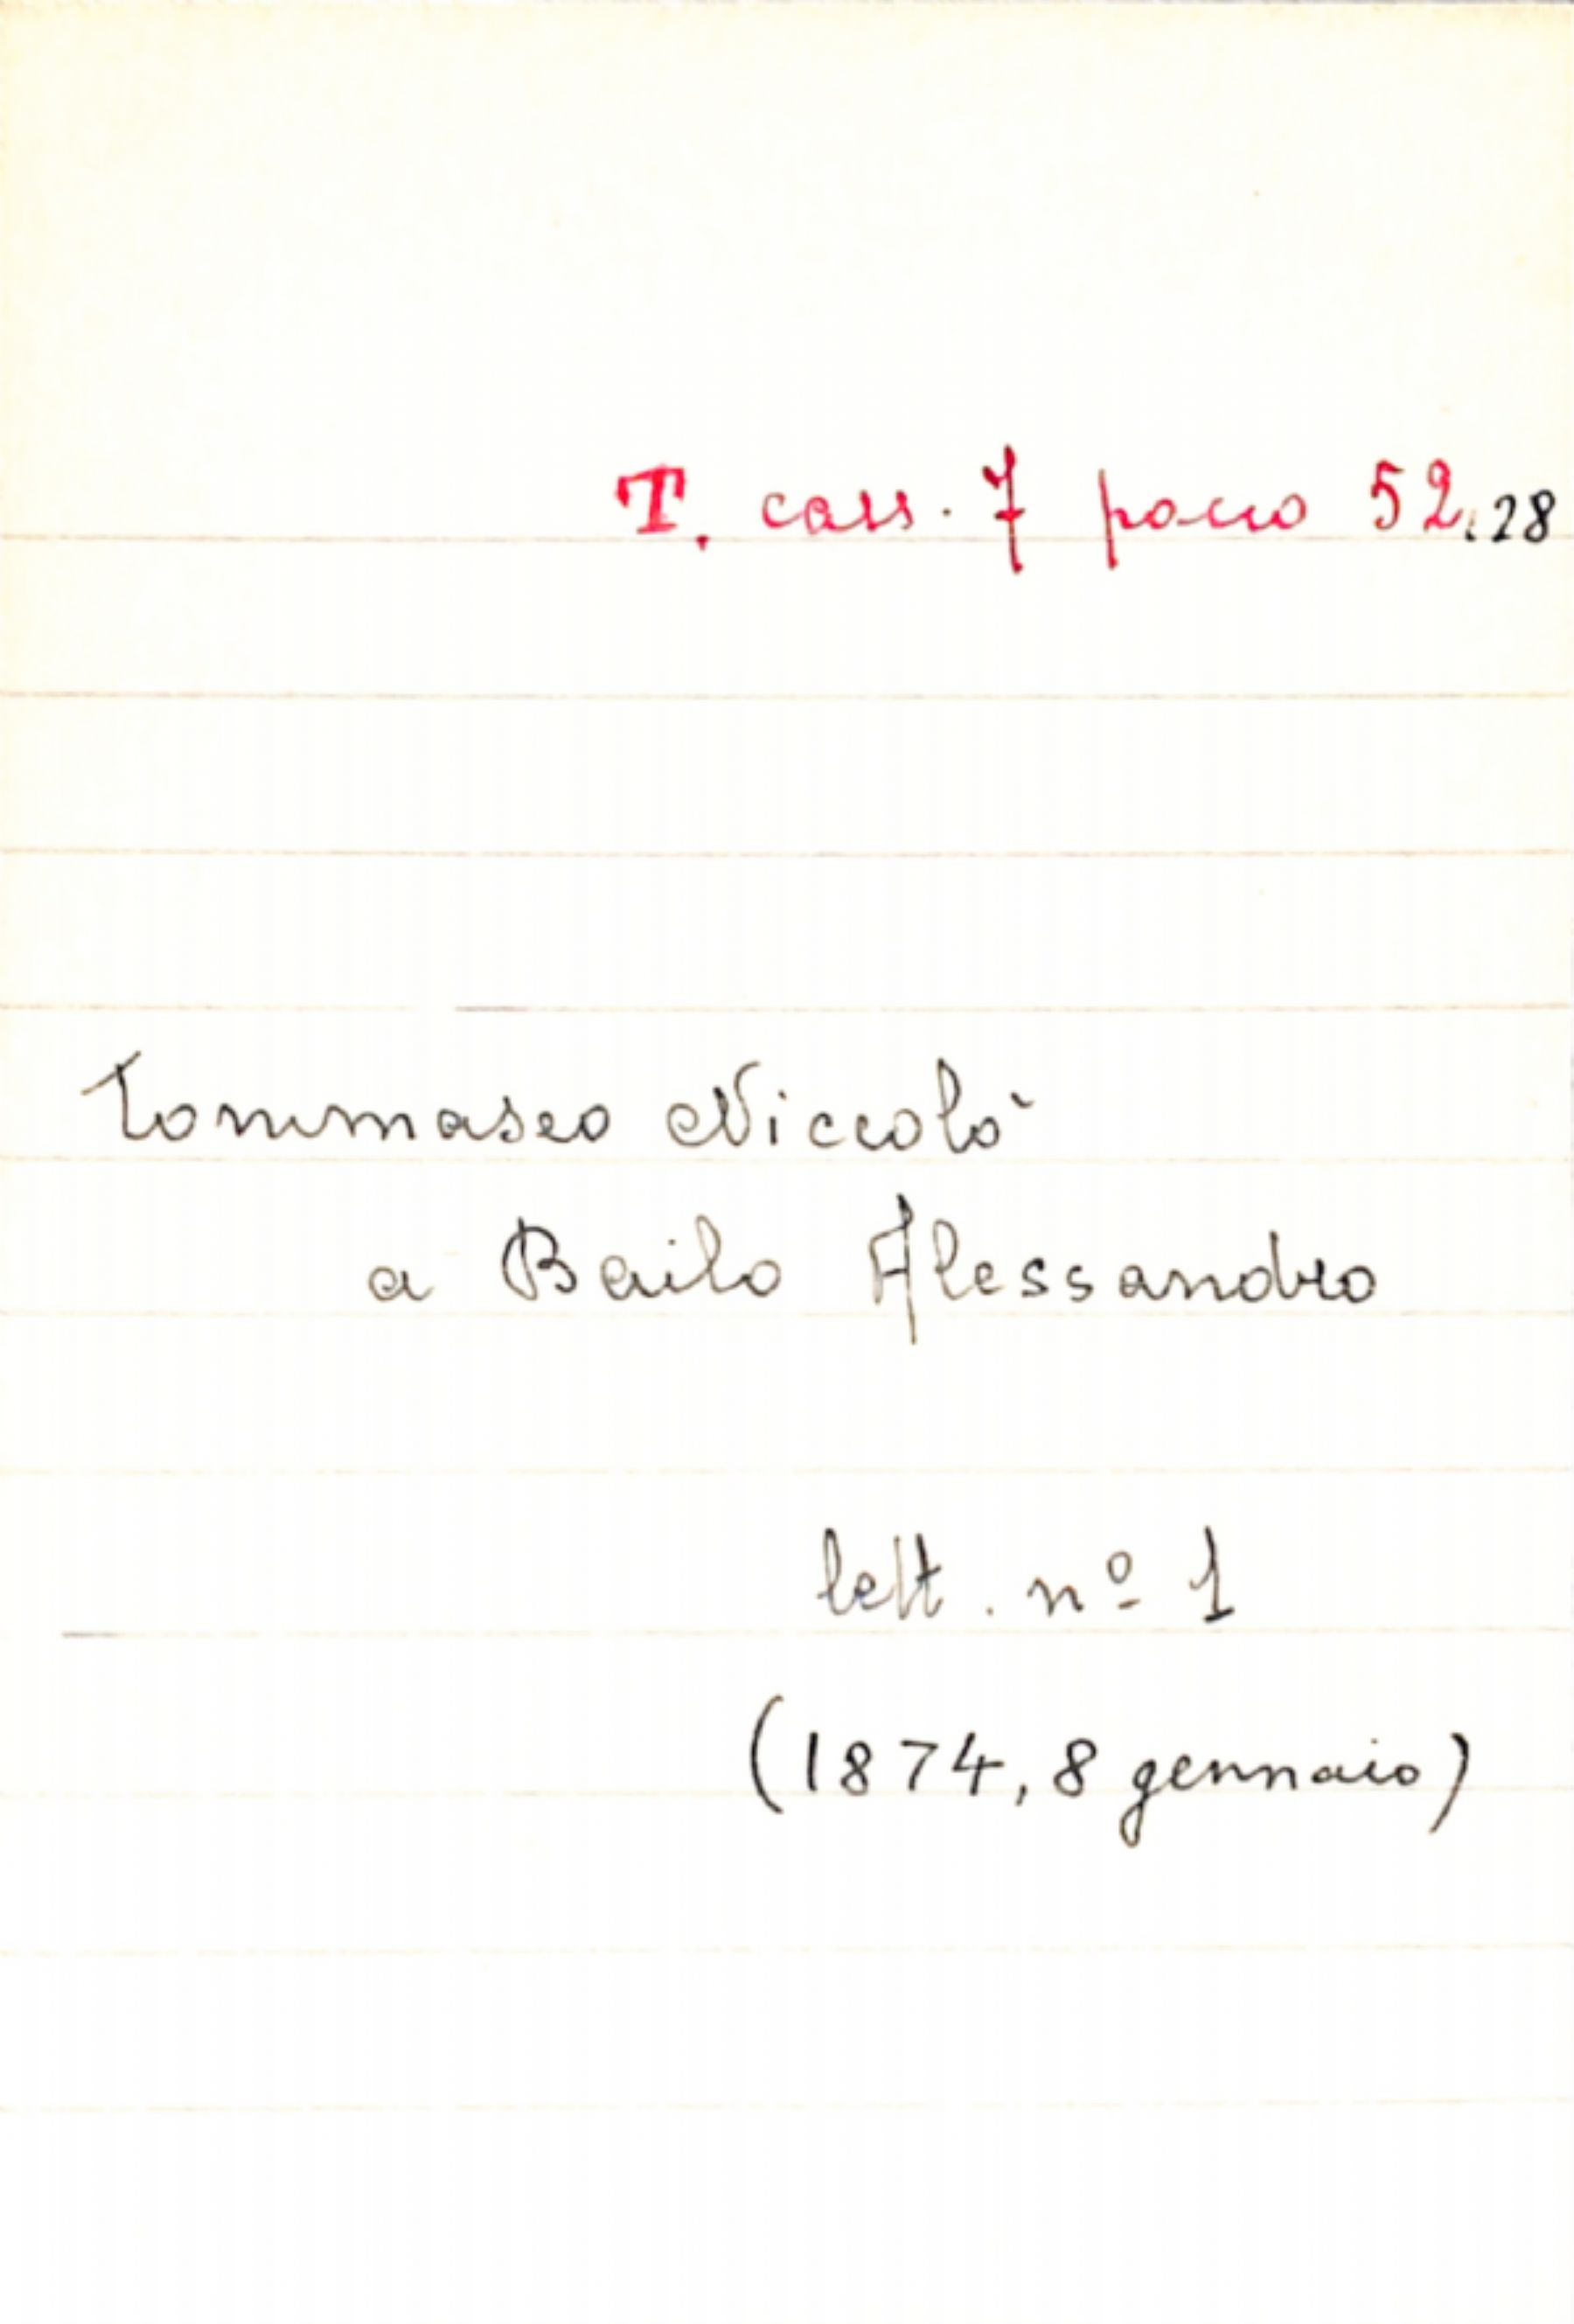 T. cass. 7 pacco 52.28
Tommaseo Niccolò
a Bailo Alessandro
lett. nº 1
(1874, 8 gennaio)